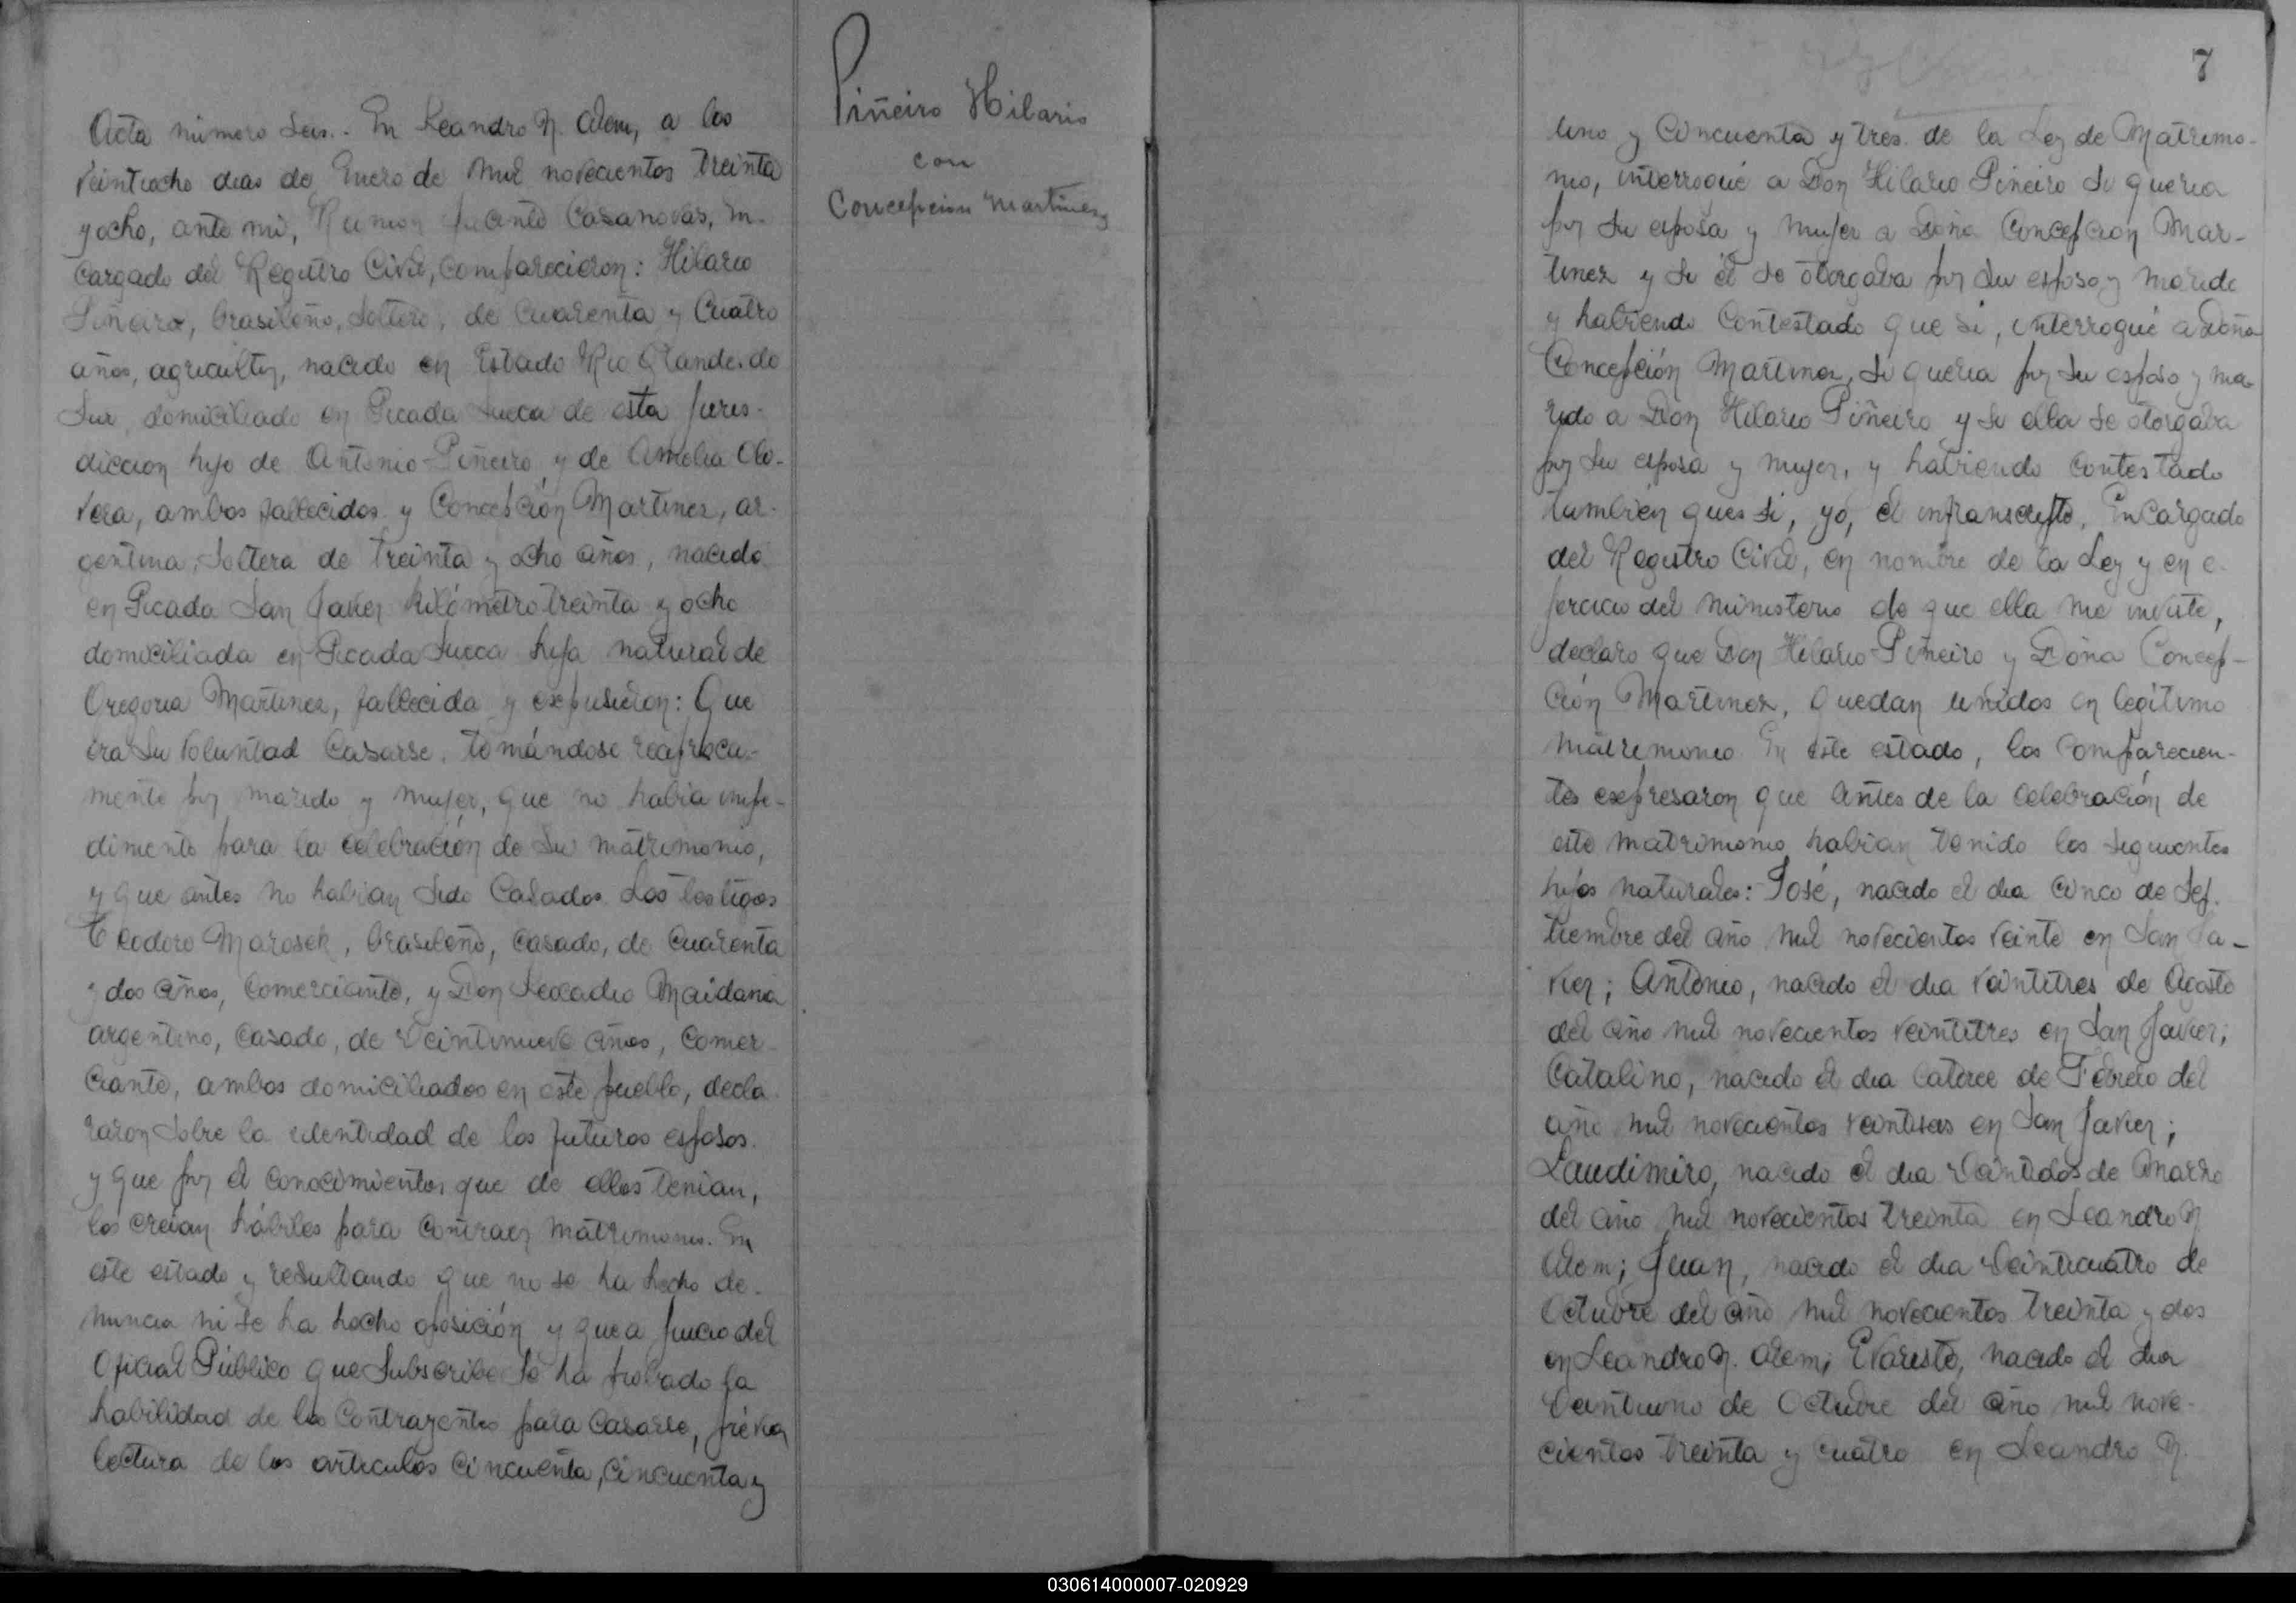 Acta número seis.- En Leandro N. Alem, a los
veintiocho dias de Enero de mil novecientos treinta
y ocho, ante mi, Ramon Jacinto Casanovas, En-
cargado del Registro Civil, comparecieron: Hilario
Piñeiro, brasileño, soltero, de cuarenta y cuatro
años, agricultor, nacido en Estado Rio Grande do
Sur, domiciliado en Picada Sueca de esta juris-
diccion hijo de Antonio Piñeiro y de Amelia Oli-
vera, ambos fallecidos y Concepción Martinez, ar-
gentina, soltera de treinta y ocho años, nacida
en Picada San Javier kilómetro treinta y ocho
domiciliada en Picada Sueca hija natural de
Gregoria Martinez, fallecida y expusieron: Que
era su voluntad casarse, tomándose reciproca-
mente por marido y mujer, que no habia impe-
dimento para la celebración de su matrimonio,
y que antes no habian sido casados. Los testigos
Teodoro Marosek, brasileño, casado, de cuarenta
y dos años, comerciante, y Don Leocadio Maidana
argentino, casado, de veintinueve años, comer-
ciante, ambos domiciliados en este pueblo, decla
raron sobre la identidad de los futuros esposos.
y que por el conocimientos que de ellos tenian,
los creian hábiles para contraer matrimonio. En
este estado y resultando que no se ha hecho de-
nuncia ni se ha hecho oposición y que a juicio del
Oficial Público que subscribe se ha probado la
habilidad de los contrayentes para casarse, prévia
lectura de los articulos cincuenta, cincuenta y
Piñeiro Hilario
con
Concepcion Martinez
7
uno y cincuenta y tres. de la Ley de Matrimo-
nio, interrogué a Don Hilario Piñeiro si queria
por su esposa y mujer a Doña Concepcion Mar-
tinez y si él se otorgaba por su esposo y marido
y habiendo contestado que si, interrogué a Doña
Concepción Martinez, si queria por su esposo y ma-
rido a Don Hilario Piñeiro y si ella se otorgaba
por su esposa y mujer, y habiendo contestado
también que si, yo, el infranscripto, Encargado
del Registro Civil, en nombre de la Ley y en e-
jercicio del ministerio de que ella me inviste,
declaro que Don Hilario Piñeiro y Doña Concep-
ción Martinez, quedan unidos en legítimo
matrimonio. En este estado, los comparecien-
tes expresaron que antes de la celebración de
este matrimonio habian tenido los siguientes
hijos naturales: José, nacido el dia cinco de Sep-
tiembre del año mil novecientos veinte en San Ja-
vier; Antonio, nacido el dia veintitres de Agosto
del año mil novecientos veintitres en San Javier;
Catalino, nacido el dia catorce de Febrero del
año mil novecientos veintiseis en San Javier;
Laudimiro, nacido el dia veintidos de Marzo
del año mil novecientos treinta en Leandro N
Alem; Juan, nacido el dia veinticuatro de
Octubre del año mil novecientos treinta y dos
en Leandro N. Alem; Evaristo, nacido el dia
veintiuno de Octubre del año mil nove-
cientos treinta y cuatro en Leandro N.
030614000007-020929